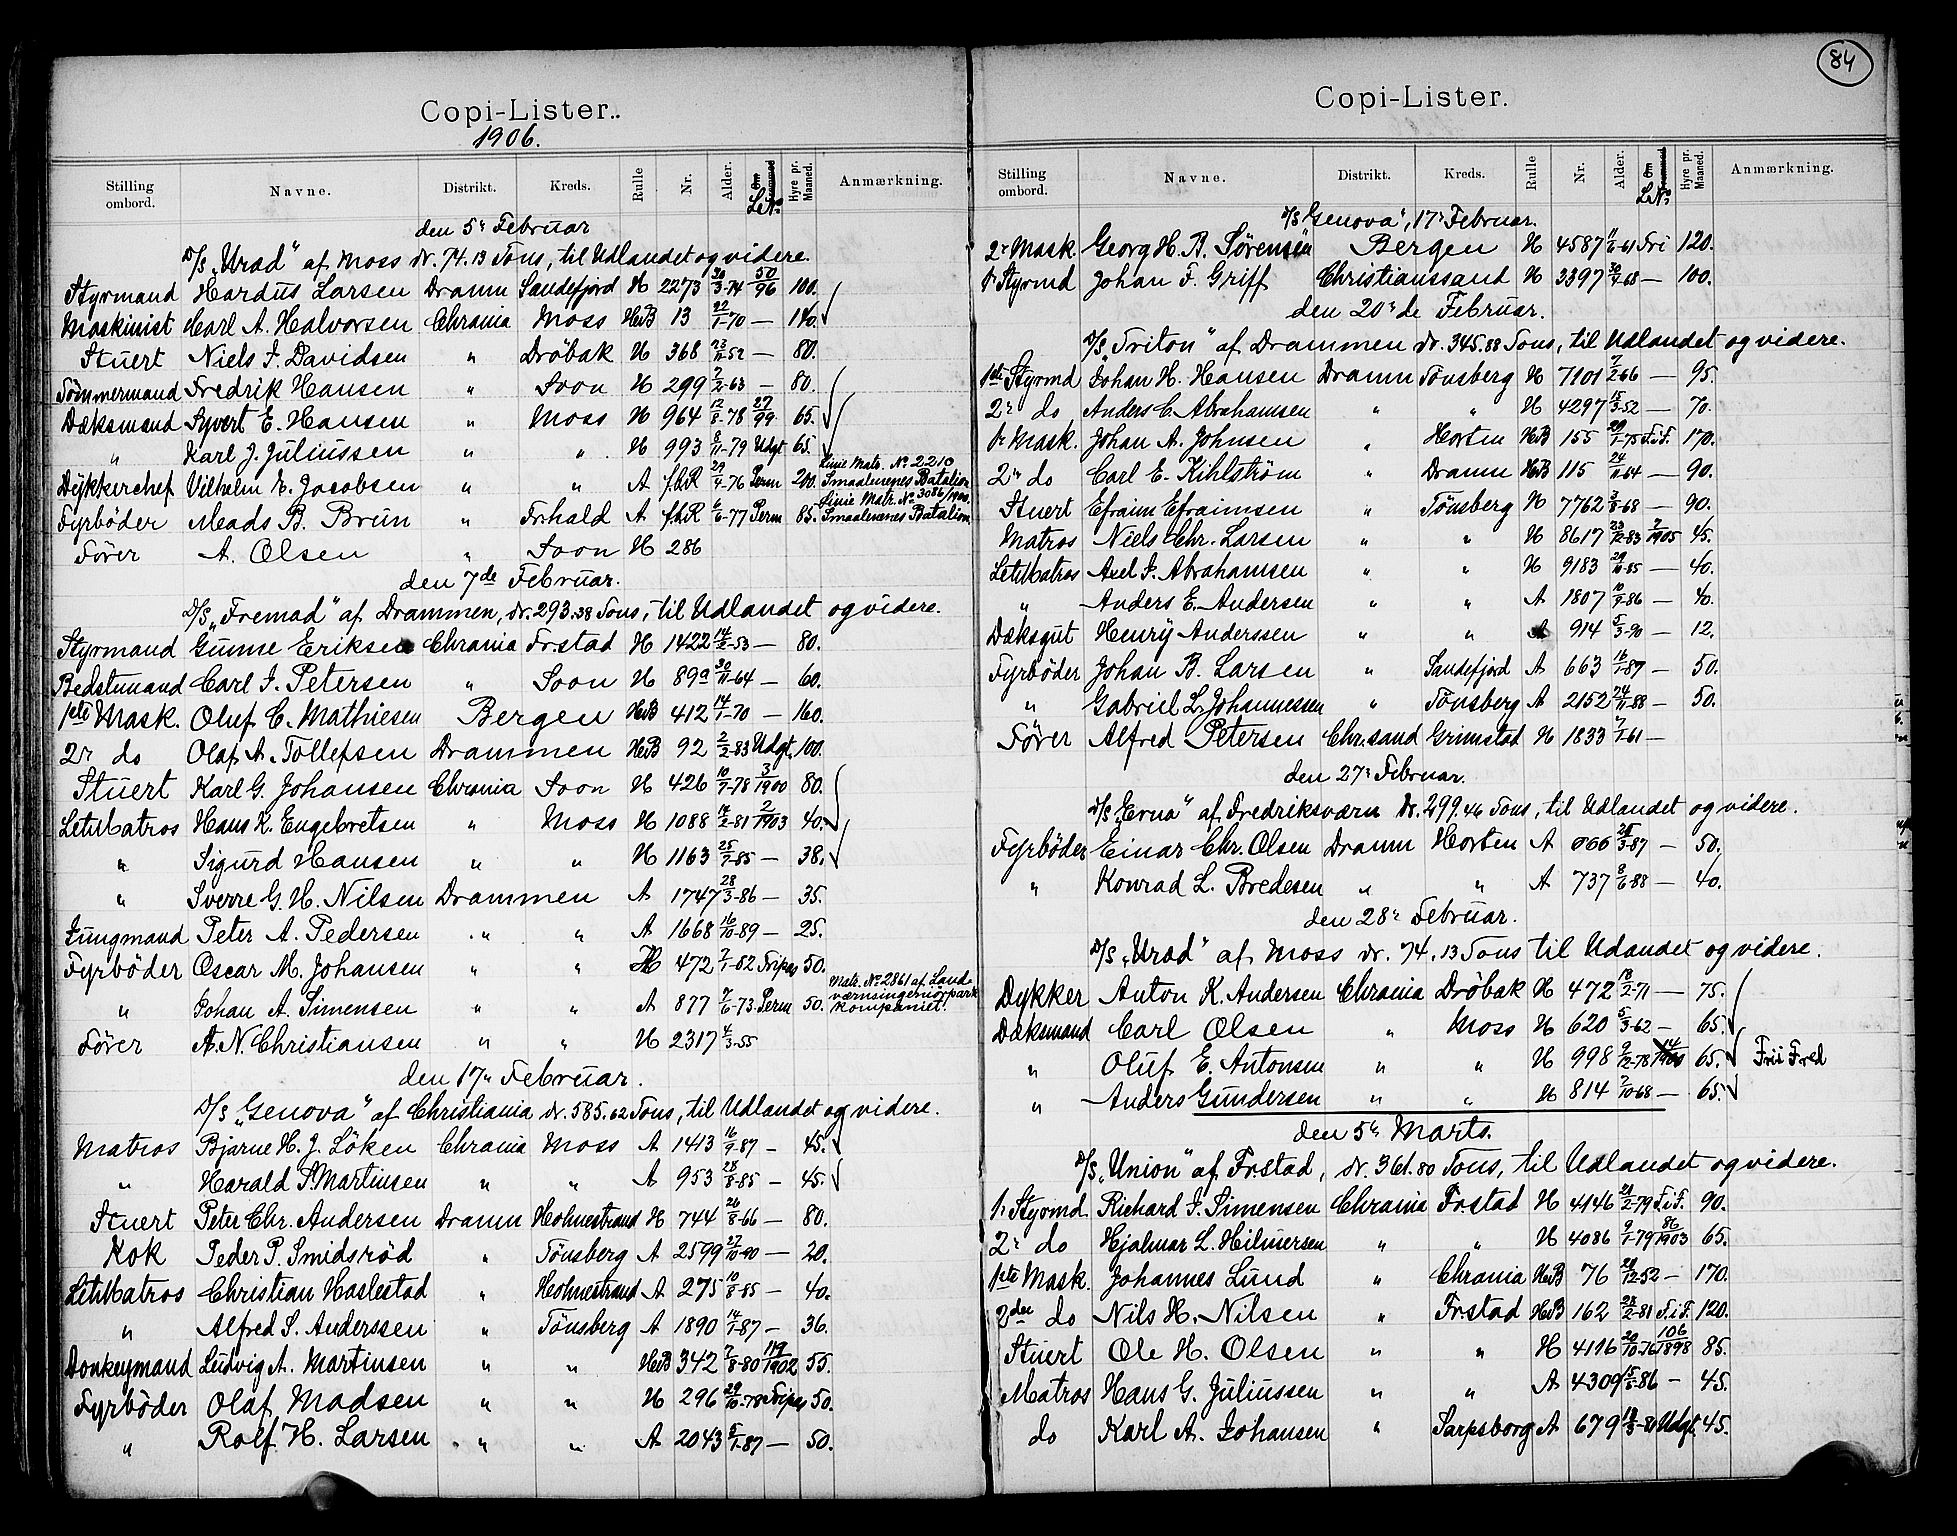 84
Copi-Lister.
1906.
Stilling ombord. Navne. Distrikt. Kreds. Rulle Nr. Alder. Om Le No Hyre pr. Maaned. Anmærkning.
den 5r Februar
D/S „Urad" af Moss dr. 74.13 Tons, til Udlandet og videre.
Styrmand Hardus Larsen Dramn Sandefjord H 2273 30/3-74 50/96 100.
Maskinist Carl A. Halvorsen Chrania Moss HB 13 22/1-70 — 140.
Stuert Niels J. Davidsen " Dröbak H 368 23/11-52 — 80.
Tömmermand Fredrik Hansen " Soon H 299 7/2-63 — 80.
Dæksmand Syvert E. Hansen " Moss H 964 12/8-78 27/99 65.
" Karl J. Juliussen " " H 993 8/11-79 Udgt 65.
Linie Matr. No 2210
Dykkerchef Vilhelm E. Jacobsen " " A f.b.R 29/4-76 Perm 200. Smaalenenes Batalion
Linie Matr. No 3086/1900.
Fyrböder Mads B. Brun " Frhald A f.b.R 6/6-77 Perm 85. Smaalenenes Batalion
Förer A. Olsen " Soon H 286
den 7de Februar.
D/S „Fremad" af Drammen, dr. 293.38 Tons, til Udlandet og videre.
Styrmand Gunne Eriksen Chrania Frstad H 1422 14/2-53 — 80.
Bedstmand Carl J. Petersen " Soon H 899 30/11-64 — 60.
1ste Mask. Oluf C. Mathiesen Bergen HB 412 14/1-70 — 160.
2r do Olaf A. Tollefsen Drammen HB 92 2/2-83 Udgt. 100.
Stuert Karl G. Johansen Chrania Soon H 426 10/7-78 3/1900 80.
LetMatros Hans K. Engebretsen " Moss H 1088 12/2-81 2/1903 40.
" Sigurd Hansen " " H 1163 25/7-85 — 38.
" Sverre G. H. Nilsen Drammen A 1747 28/3-86 — 35.
Jungmand Peter A. Pedersen " " A 1668 16/10-89 — 25.
Fyrböder Oscar M. Johansen " " H 472 7/1-82 Fripas 50.
Matr. No 2861 af Land-
" Johan A. Simensen " " A 877 7/6-73 Perm 50. værnsingeniörpark
kompaniet.
Förer A. N. Christiansen " " H 2317 4/3-55
den 17r Februar.
D/S „Genova" af Christiania dr. 585.62 Tons, til Udlandet og videre.
Matros Bjarne H. J. Löken Chrania Moss A 1413 16/9-87 — 45.
" Harald S. Martinsen " " A 953 28/8-85 — 45.
Stuert Peter Chr. Andersen Dramn Holmestrand H 744 26/8-66 — 80.
Kok Peder P. Smidsröd " Tönsberg A 2599 27/10-90 — 20.
LetMatros Christian Haslestad " Holmestrand A 275 10/8-85 — 40.
" Alfred S. Anderssen " Tönsberg A 1890 14/1-87 — 36.
Donkeymand Ludvig A. Martinsen " " HB 342 7/8-80 119/1902 55.
Fyrböder Olaf Madsen " " H 296 29/10-78 Fripas 50.
" Rolf H. Larsen " " A 2043 5/1-87 — 50.
Copi-Lister.
Stilling ombord. Navne. Distrikt. Kreds. Rulle Nr. Alder. Om Le No Hyre pr. Maaned. Anmærkning.
D/S „Genova", 17r Februar.
2r Mask. Georg H. B. Sørensen Bergen H 4587 11/6-61 Fri 120.
1r Styrmd Johan F. Griff Christianssand H 3397 30/9-68 — 100.
den 20r de Februar.
D/S „Triton" af Drammen dr. 345.88 Tons, til Udlandet og videre.
1ste Styrmd Johan H. Hansen Dramn Tönsberg H 7101 7/2-66 — 95.
2r do Anders C. Abrahamsen " " H 4297 15/3-52 — 70.
1r Mask. Johan A. Johnsen " Horten HB 155 29/1-75 F.i.F. 170.
2r do Carl E. Kihlström " Dramn HB 115 24/11-64 — 90.
Stuert Efraim Efraimsen " Tönsberg H 7762 3/8-68 — 90.
Matros Niels Chr. Larsen " " H 8617 23/12-83 2/1905 45.
LetMatros Axel J. Abrahamsen " " H 9183 29/11-85 — 40.
" Anders E. Andersen " " A 1807 10/9-86 — 40.
Dæksgut Henry Anderssen " " A 914 5/3-90 — 12.
Fyrböder Johan B. Larsen " Sandefjord A 663 16/1-87 — 50.
" Gabriel L. Johannessen " Tönsberg A 2152 24/11-88 — 50.
Förer Alfred Petersen Chr.sand Grimstad H 1833 7/1-61 —
den 27r Februar.
D/S „Erna" af Fredriksværn dr. 299.46 Tons, til Udlandet og videre.
Fyrböder Einar Chr. Olsen Dramn Horten A 666 25/3-87 — 50.
" Konrad L. Bredesen " " A 737 8/6-88 — 40.
den 28r Februar.
D/S „Urad" af Moss dr. 74.13 Tons til Udandet og videre.
Dykker Anton K. Andersen Chrania Dröbak H 472 18/2-71 — 75.
Dæksmand Carl Olsen " Moss H 620 5/3-62 — 65.
" Oluf E. Antonsen " " H 998 9/12-78 65. Frii Fred
" Anders Gundersen " " H 814 7/10-68 — 65.
den 5te Marts.
D/S „Union" af Frstad, dr. 361.80 Tons, til Udlandet og videre.
1r Styrmd. Richard J. Simensen Chrania Frstad H 4146 21/2-79 F.i.F. 90.
2r do Hjalmar L. Hilmersen " " H 4086 9/1-79 86/1903 65.
1ste Mask. Johannes Lund " Chrania HB 76 29/12-52 — 170.
2den do Nils H. Nilsen " Frstad HB 162 28/2-81 F.i.F. 120.
Stuert Ole H. Olsen " " H 4116 20/10-76 106/1898 85.
Matros Hans G. Juliussen " " A 4309 15/5-86 — 45.
do Karl A. Johansen " Sarpsborg A 679 18/3-81 Udgt. 45.